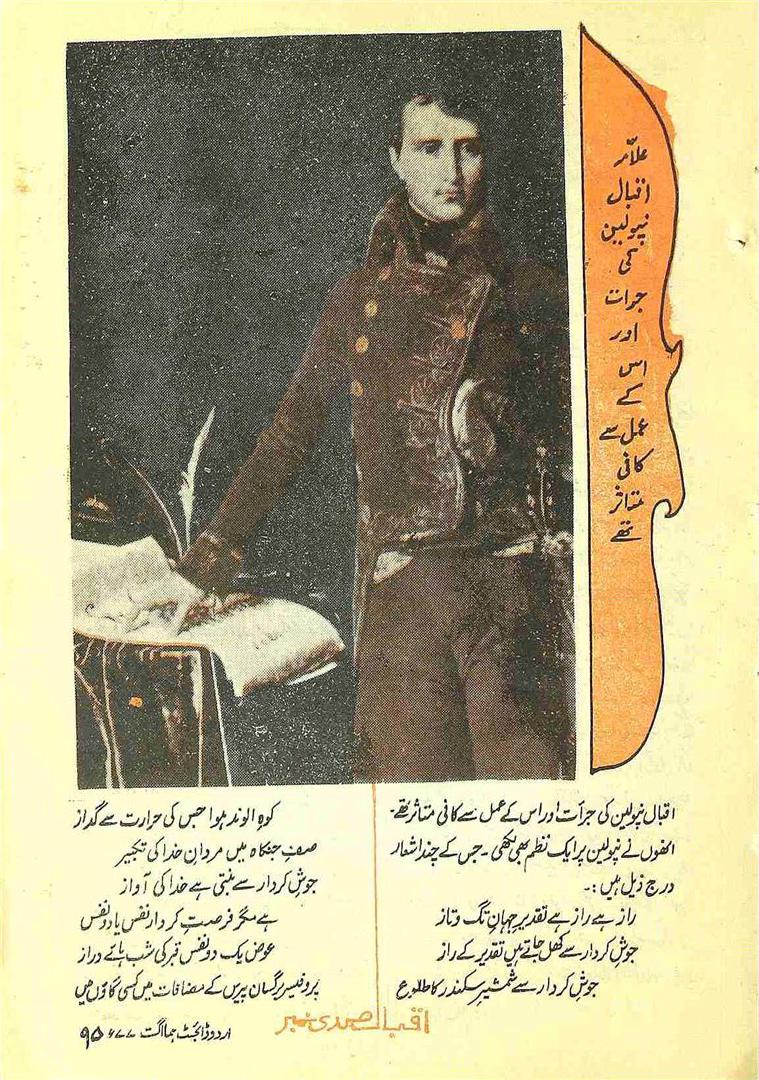 علامہ
اقبال
نپولین
کی
جرات
اور
اس
کے
عمل سے
کافی
متاثر
تھے
اقبال نپولین کی جرأت اور اس کے عمل سے کافی متاثر تھے۔
انھوں نے نپولین پر ایک نظم بھی لکھی۔ جس کے چند اشعار
درج ذیل ہیں :۔
راز ہے راز ہے تقدیرِ جہانِ تگ و تاز
جوشِ کردار سے کھل جاتے ہیں تقدیر کے راز
جوش کردار سے شمشیرِ سکندر کا طلوع
کوہِ الوند ہوا جس کی حرارت سے گداز
صفِ جنگاہ میں مردانِ خدا کی تکبیر
جوشِ کردار سے بنتی ہے خدا کی آواز
ہے مگر فرصتِ کردار نفس یا دو نفس
عوض یک دو نفس قبر کی شب ہائے دراز
پروفیسر برگسان پیرس کے مضافات میں کسی گاؤں میں
اقبال صدی نمبر
اردو ڈائجسٹ ہما اگست ۷۷ء ۹۵